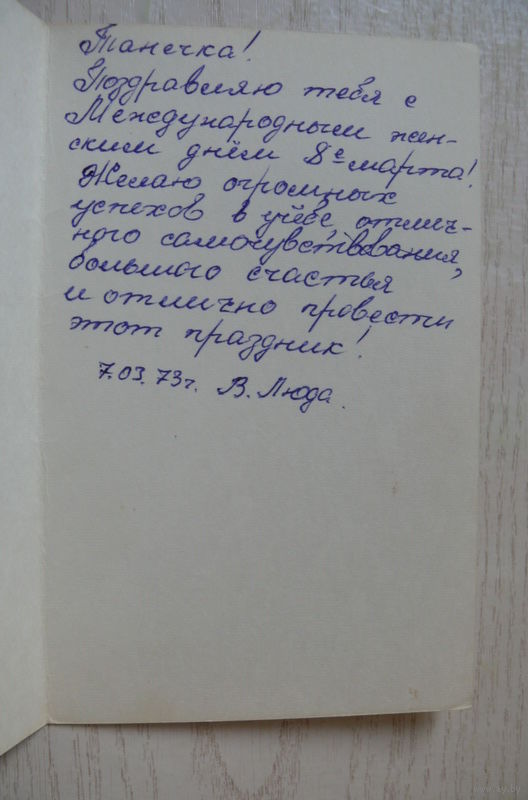 Танечка!
Поздравляю тебя с
Международным жен-
ским днём 8е марта!
Желаю огромных
успехов в учёбе, отлич-
ного самочувствования,
большого счастья
и отлично провести
этот праздник!
7.03.73г. В. Люда.